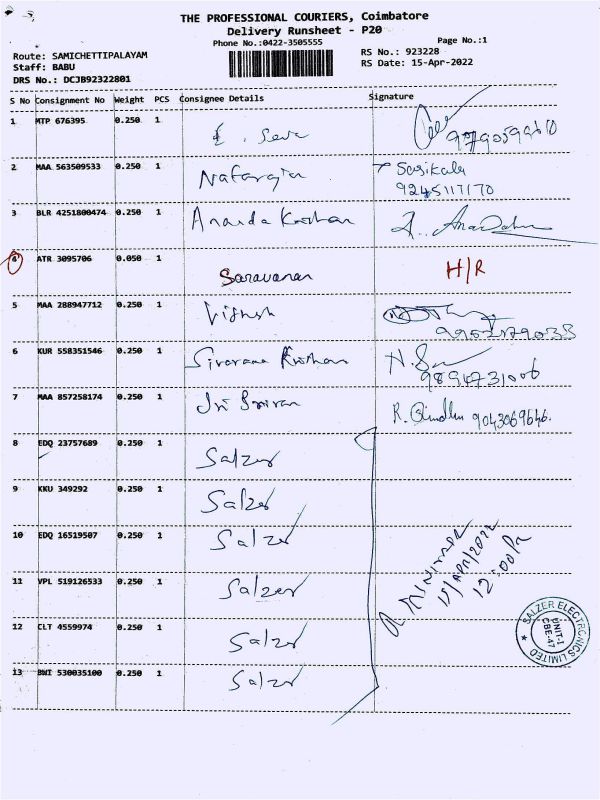 THE PROFESSIONAL COURIERS, Coimbatore
Delivery Runsheet - P20
Phone No.:0422-3505555
Page No.:1
Route: SAMICHETTIPALAYAM
Staff: BABU
DRS No.: DCJB92322801
RS No.: 923228
RS Date: 15-Apr-2022
S No Consignment No Weight PCS Consignee Details Signature
1 MTP 676395 0.250 1
2 MAA 563509533 0.250 1 Sasikala
9245117170
3 BLR 4251800474 0.250 1 Ananda Krishnan
4 ATR 3095706 0.050 1 Saravanan H/R
5 MAA 288947712 0.250 1
6 KUR 558351546 0.250 1
7 MAA 857258174 0.250 1 9043069646.
8 EDQ 23757689 0.250 1 Salzer
9 KKU 349292 0.250 1 Salzer
10 EDQ 16519507 0.250 1 Salzer
11 VPL 519126533 0.250 1 Salzer
12 CLT 4559974 0.250 1 Salzer
13 BWI 530035100 0.250 1 Salzer
12:00
SALZER ELECTRONICS LIMITED
UNIT-I
CBE-47